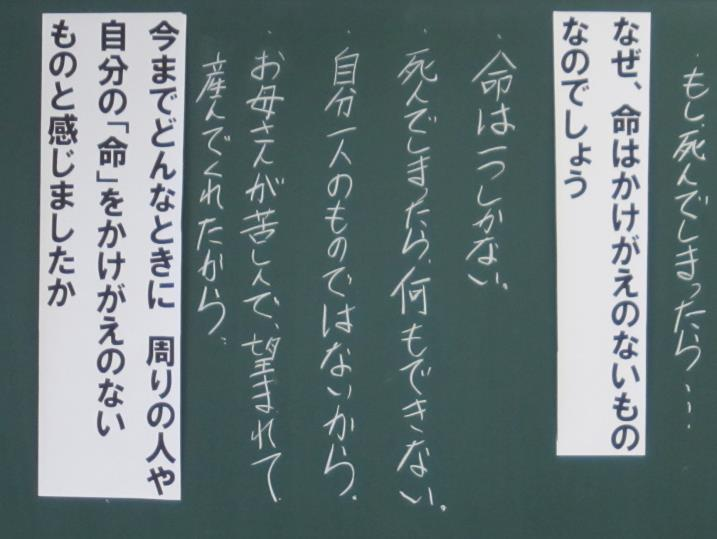 ・もし、死んでしまったら…
なぜ、命はかけがえのないもの
なのでしょう
・命は一つしかない。
・死んでしまったら、何もできない。
・自分一人のものではないから。
・お母さんが苦しんで、望まれて
産んでくれたから、
今までどんなときに　周りの人や
自分の「命」をかけがえのない
ものと感じましたか